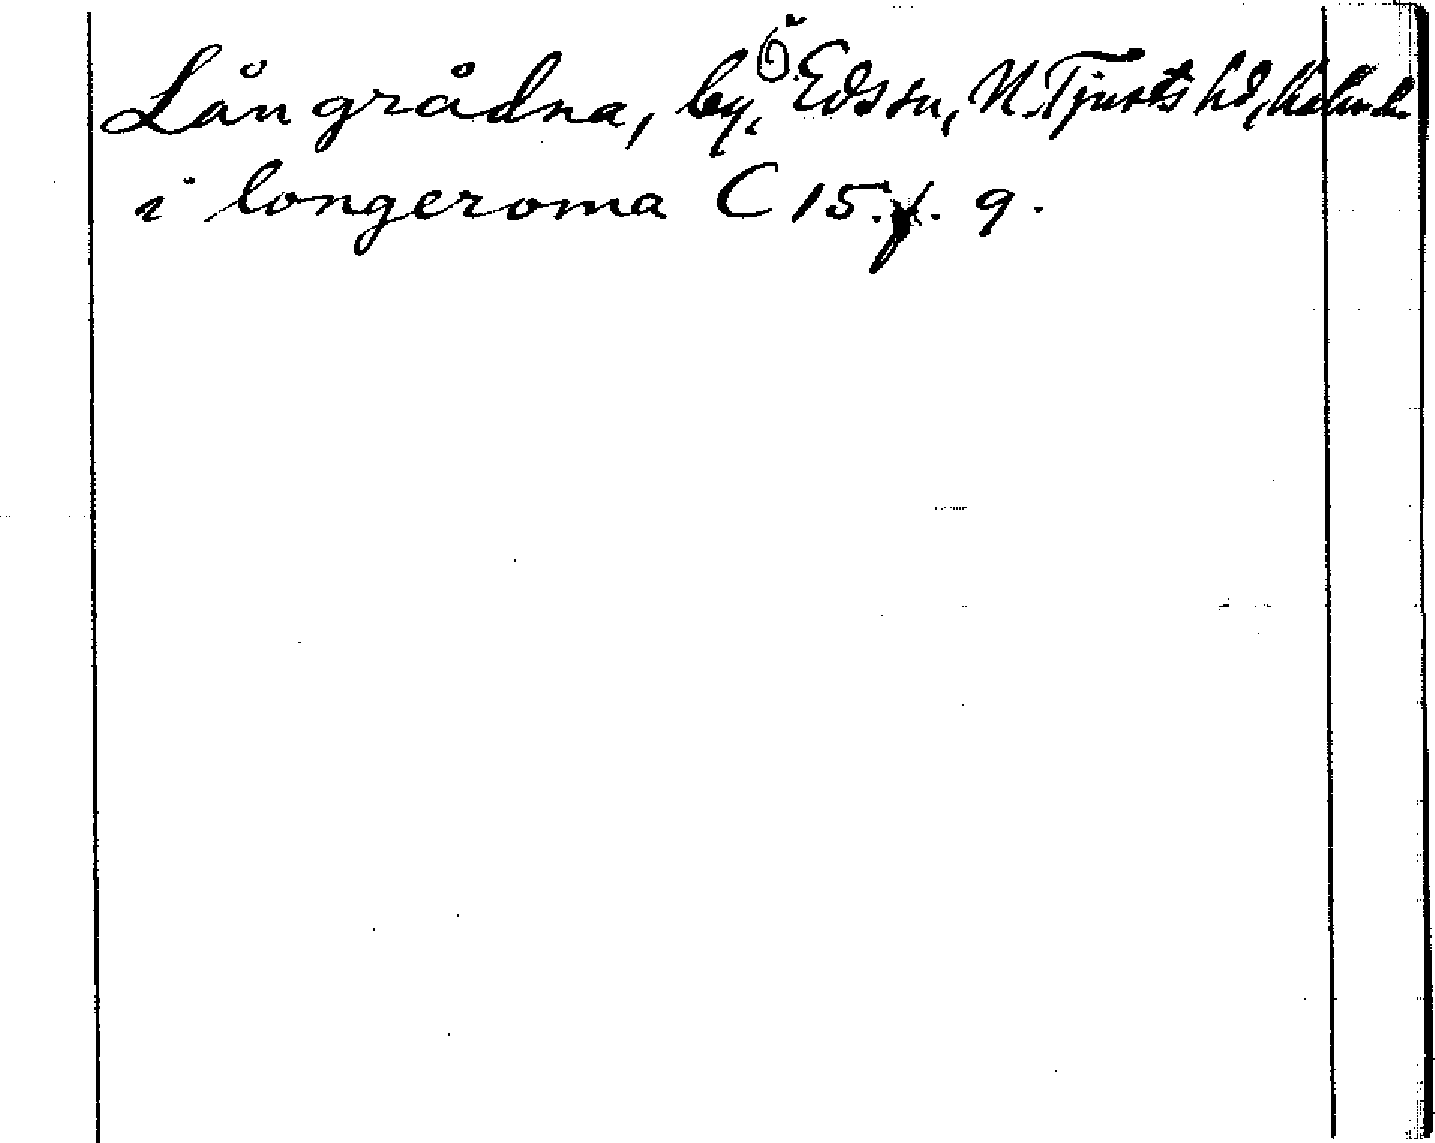 Långrådna, by, Ö Eds sn, N. Tjusts hd, Kalm. l.
i longeroma C 15. f. 9.